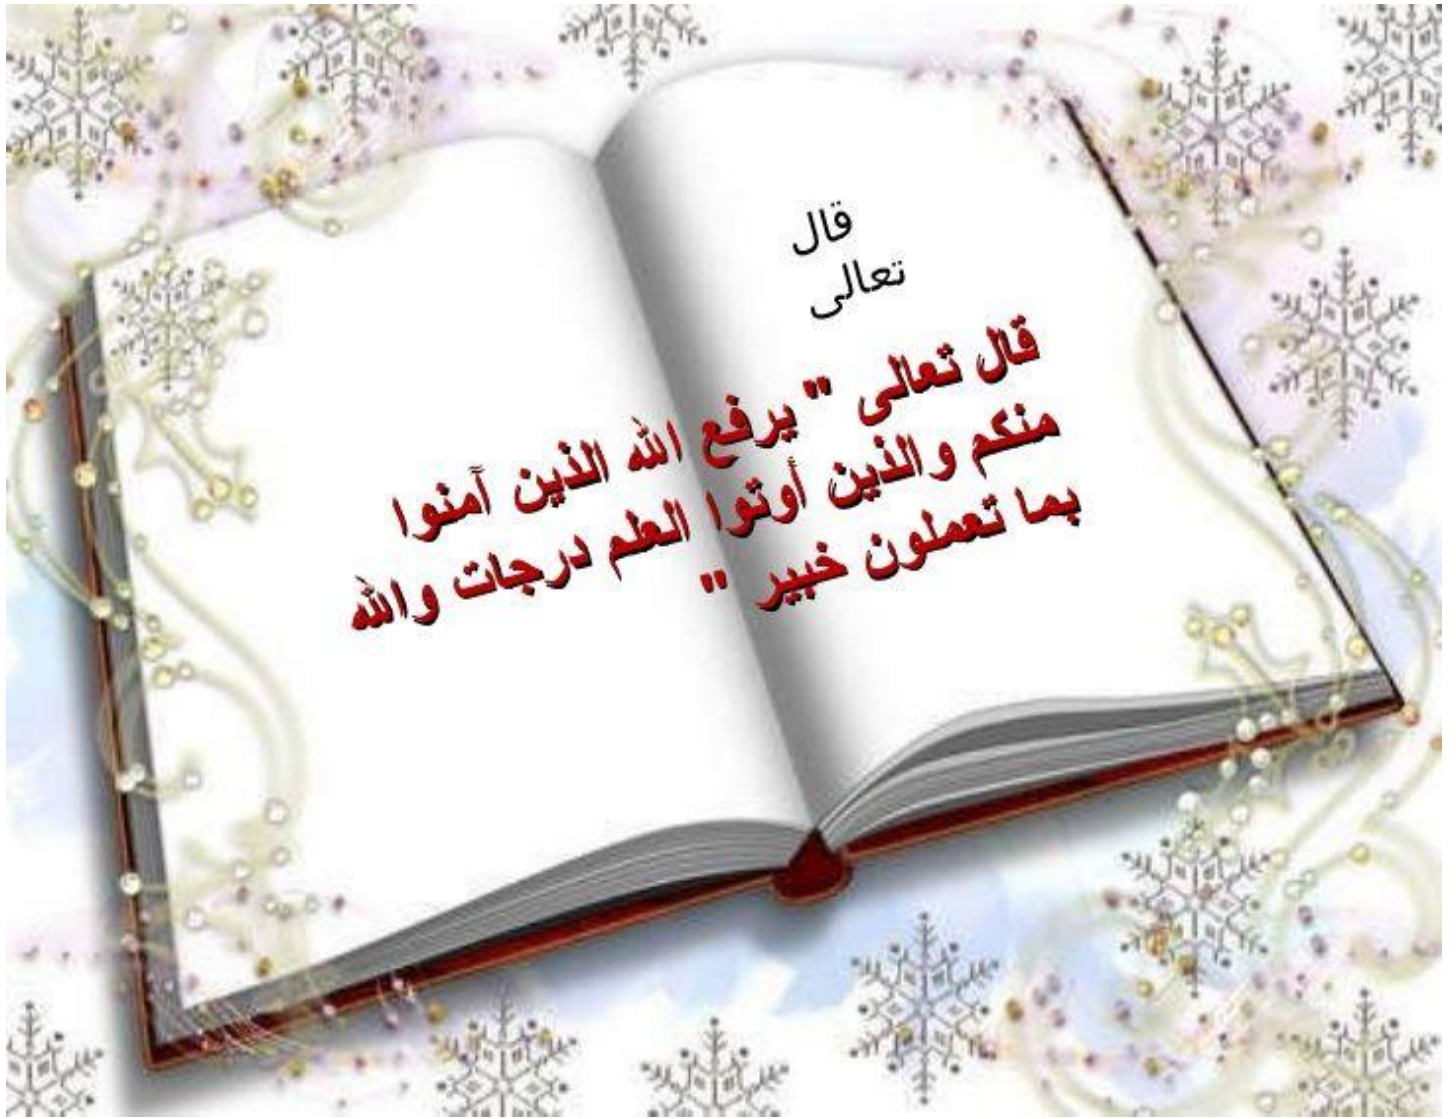 قال
تعالى
قال تعالى " يرفع الله الذين آمنوا
منكم والذين أوتوا العلم درجات والله
بما تعملون خبير "